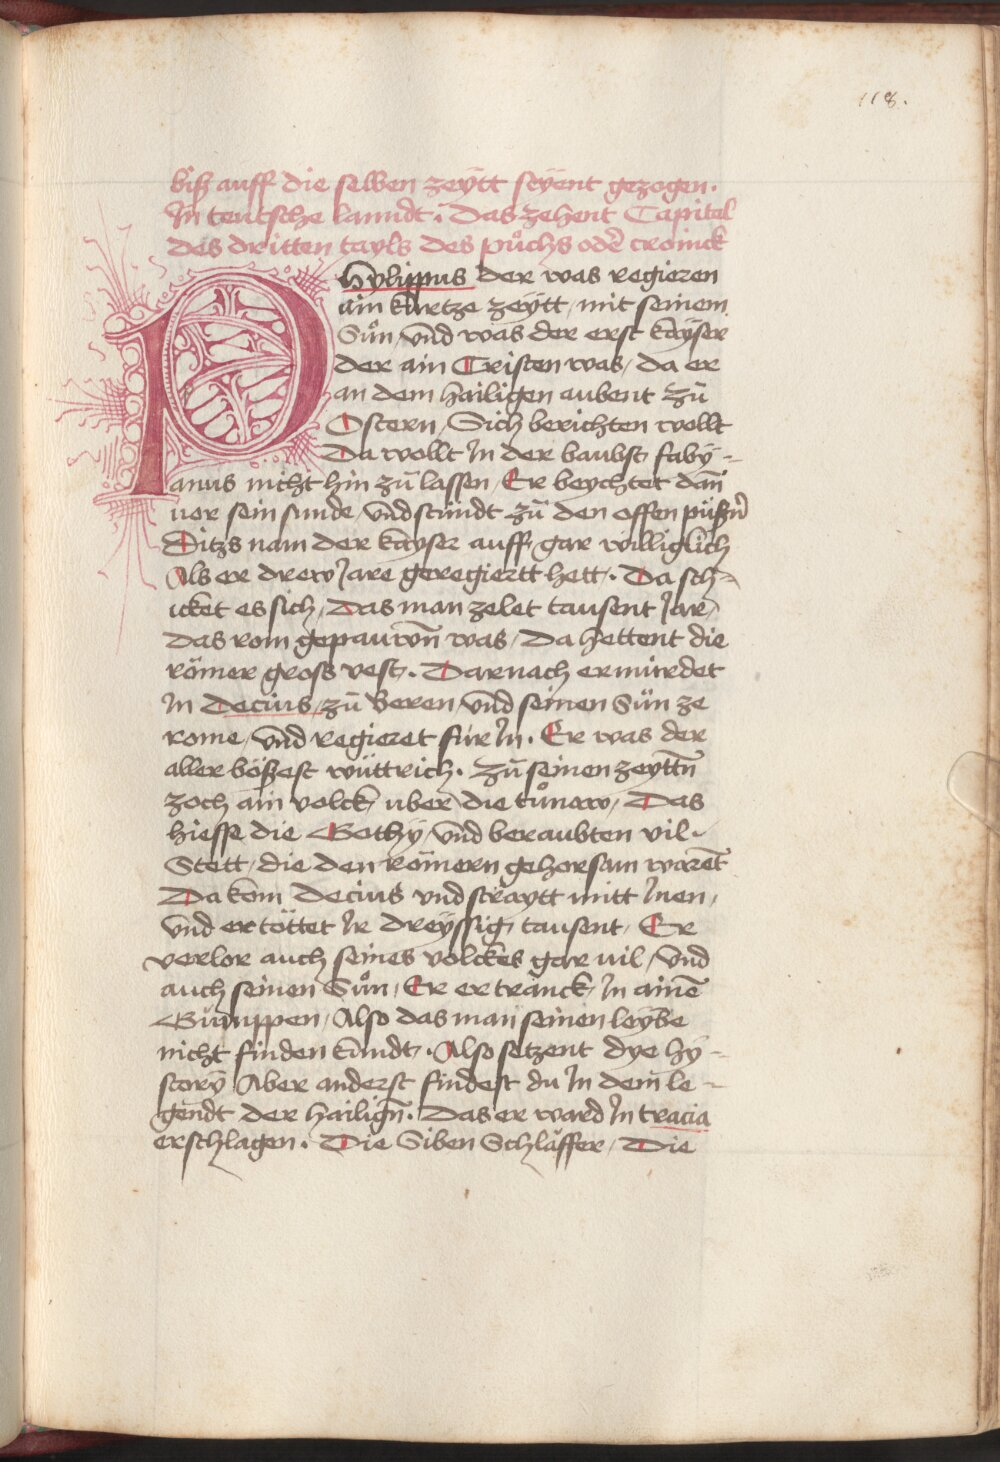 118.
biß auff die selben zeÿtt seÿent gezogen.
In teutsche lanndt. Das zehent Capitel
des dritten tayls des půchs odeꝛ cronick
Phÿlippus der was regieren
ain kurtze zeÿtt, mit seinem
Sůn, vnd was der erst kaÿser
der ain Cristen was, da er
an dem hailigen aubent zů
Ostern, Sich berichten wollt
Da wollt In der baubst fabÿ-
anus nicht hin zů lassen, Er beychtet dañ
uor sein sunde, vnd stůndt zů den offen püßñ
Ditzs nam der kayser auff, gar williglich
Als er drew Jare geregiertt hett. Da sch-
icket es sich, Das man zelet tausent Jar,
das rom gepauwñ was, Da hettent die
römer gross vest. Darnach ermürdet
In Decius, zů Beren, vnd seinen Sůn ze
rome, vnd regieret für In. Er was der
aller bößest wüttrich. Zů seinen zeyttñ
zoch ain volck, uber die tůnaw, Das
hiesse die Gothÿ, vnd beraubten vil
Stett, die den Römern gehorsam warēt
Da kom Decius vnd straytt mitt Inen,
vnd er töttet Ir dreÿssig, tausent, Er
verlor auch seines volckes gar uil, vnd
auch seinen Sůn, Er ertranck, In ainē
Gumppen, Also das man seinen leÿbe
nicht finden kundt. Also setzent dye hÿ-
storÿ Aber anderst findest du In dem le-
gendt der hailigñ. Das er ward In tracia
erschlagen. Die Siben Schläffer, Die